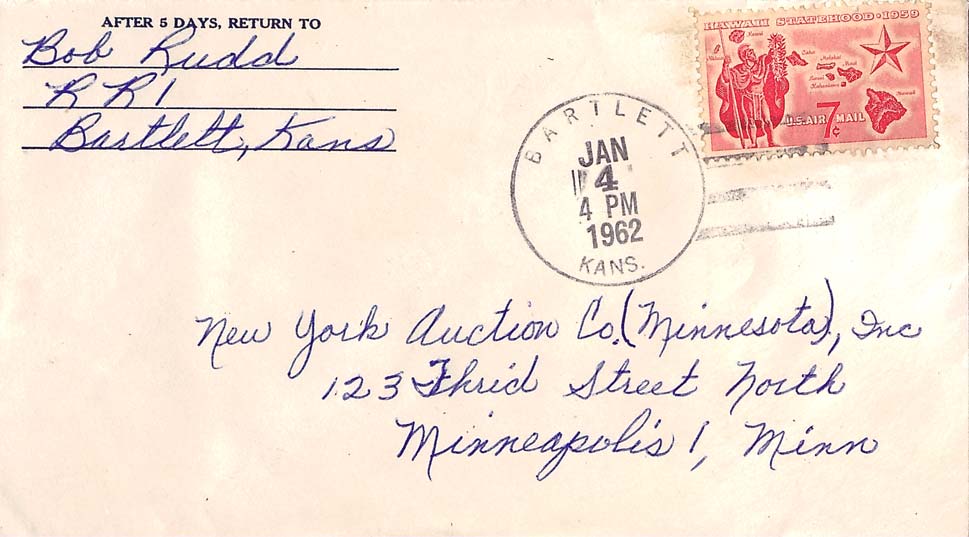 AFTER 5 DAYS, RETURN TO
Bob Rudd
RR1
Bartlett, Kans
HAWAII STATEHOOD · 1959
Kauai
Oahu
Molokai
Maui
Lanai
Kahoolawe
Hawaii
U.S. AIR MAIL
7¢
BARTLETT
JAN
4
4 PM
1962
KANS.
New York Auction Co. (Minnesota), Inc
123 Thrid Street North
Minneapolis 1, Minn